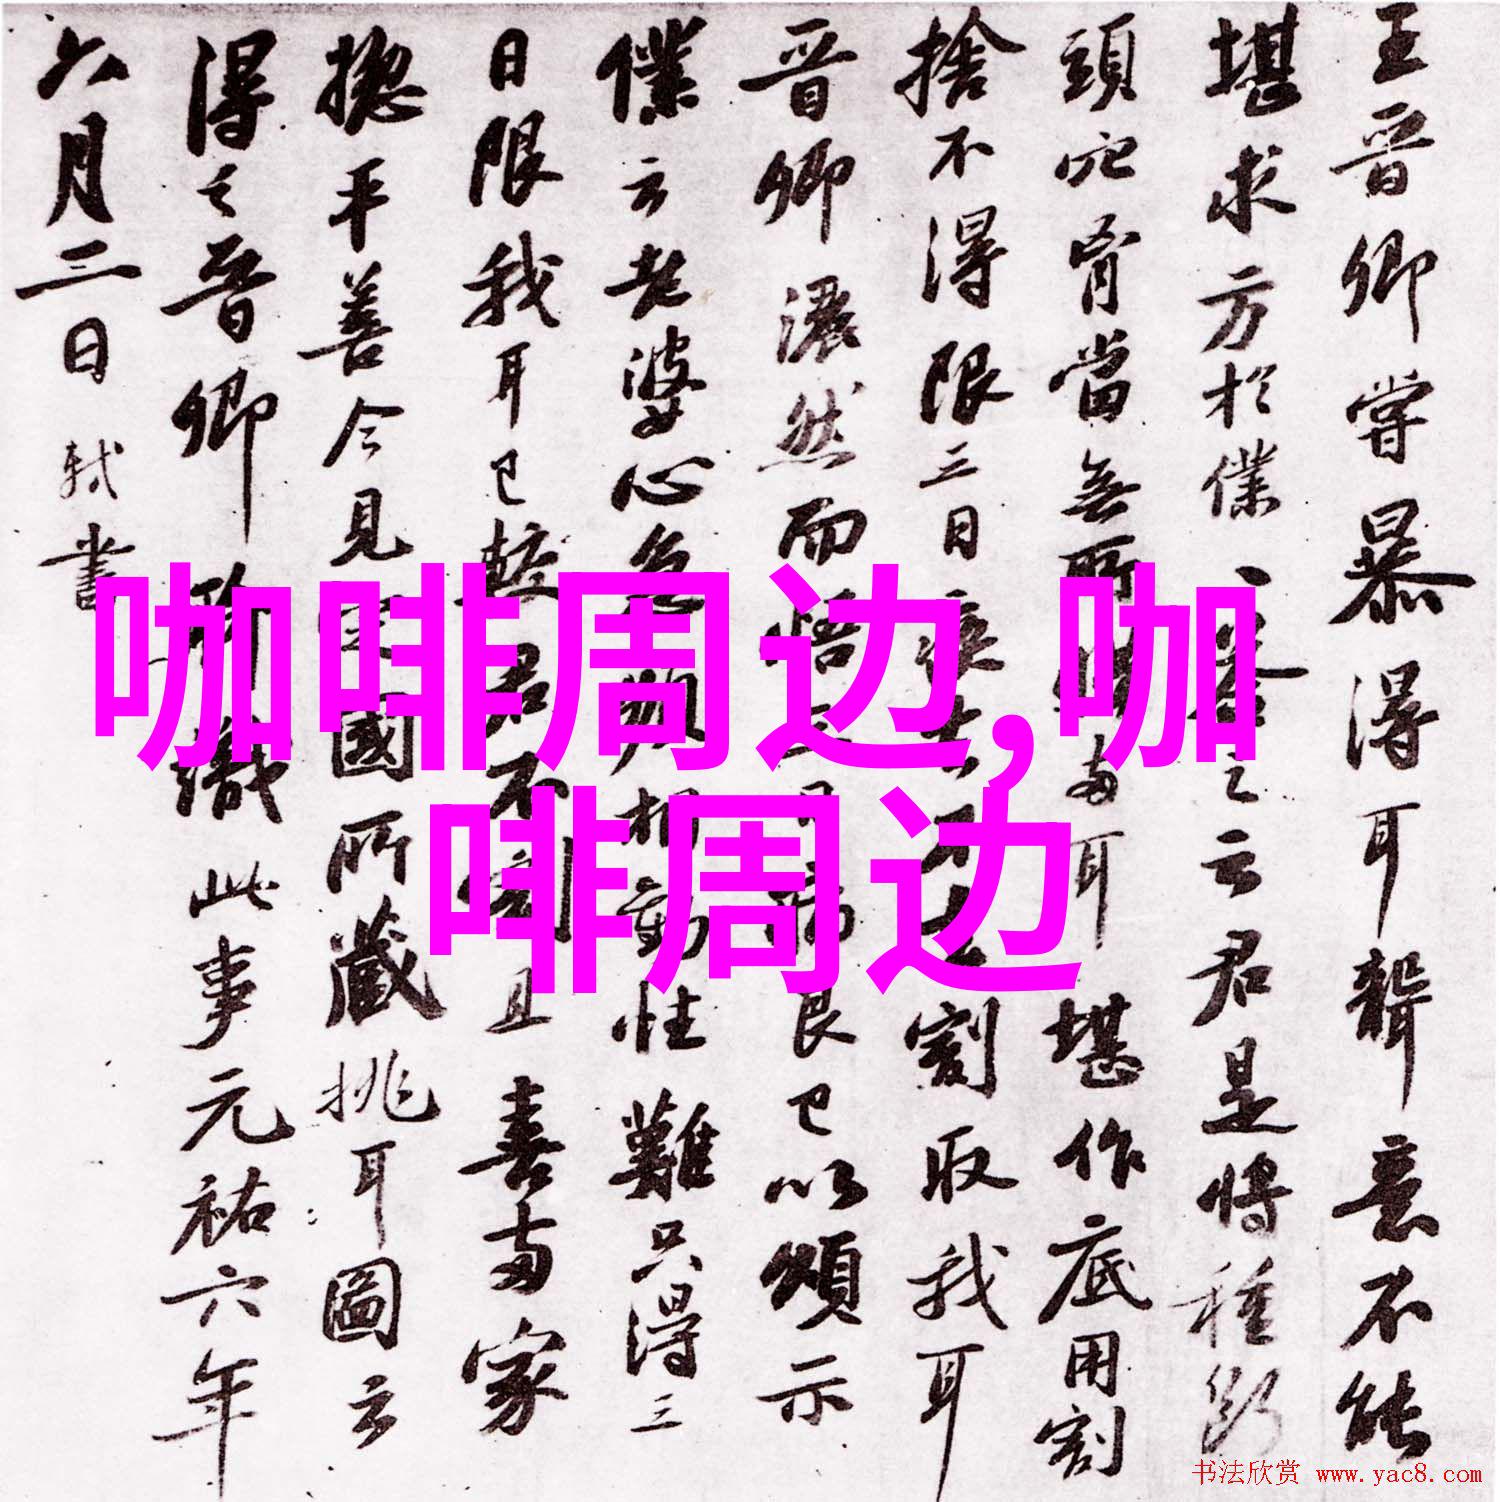 王晋卿嘗暴得耳聾意不能
堪求方於僕、荅之云君是將種斷
頭穴胷當無所惜兩耳堪作底用割
捨不得限三日疾去不去割取我耳
晋卿灑然而悟三日病良已以頌示
僕云老婆心急頻相勸性難只得三
日限我耳已較君不割且喜兩家
揔平善今見定國所藏挑耳圖云
得之晋卿聊識此事元祐六年
六月三日 軾書
咖啡周边,咖
啡周边
书法欣赏 www.yac8.com